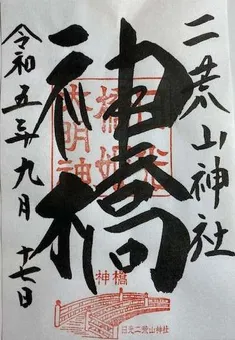 二荒山神社
神橋
令和五年九月十七日
橋姫
大明神
神橋
日光二荒山神社